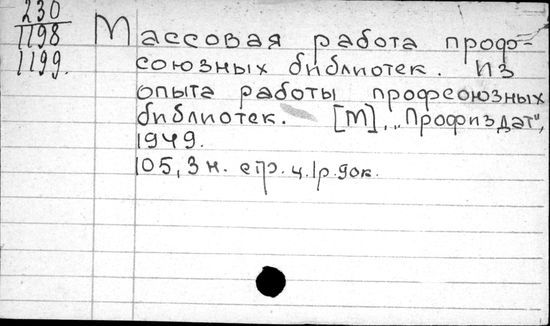 230
1198
1199.
Массовая работа профсоюзных библиотек. Из
опыта работы профсоюзных
библиотек. [М], „Профиздат",
1949.
105, 3 н. стр. ц. 1р. 90к.